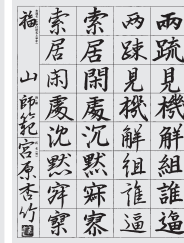 兩疏見機解組誰逼
两踈見機解組誰逼
索居閒處沉默寂寥
索居閑處沈默寂寥
福山師範宮原杏竹